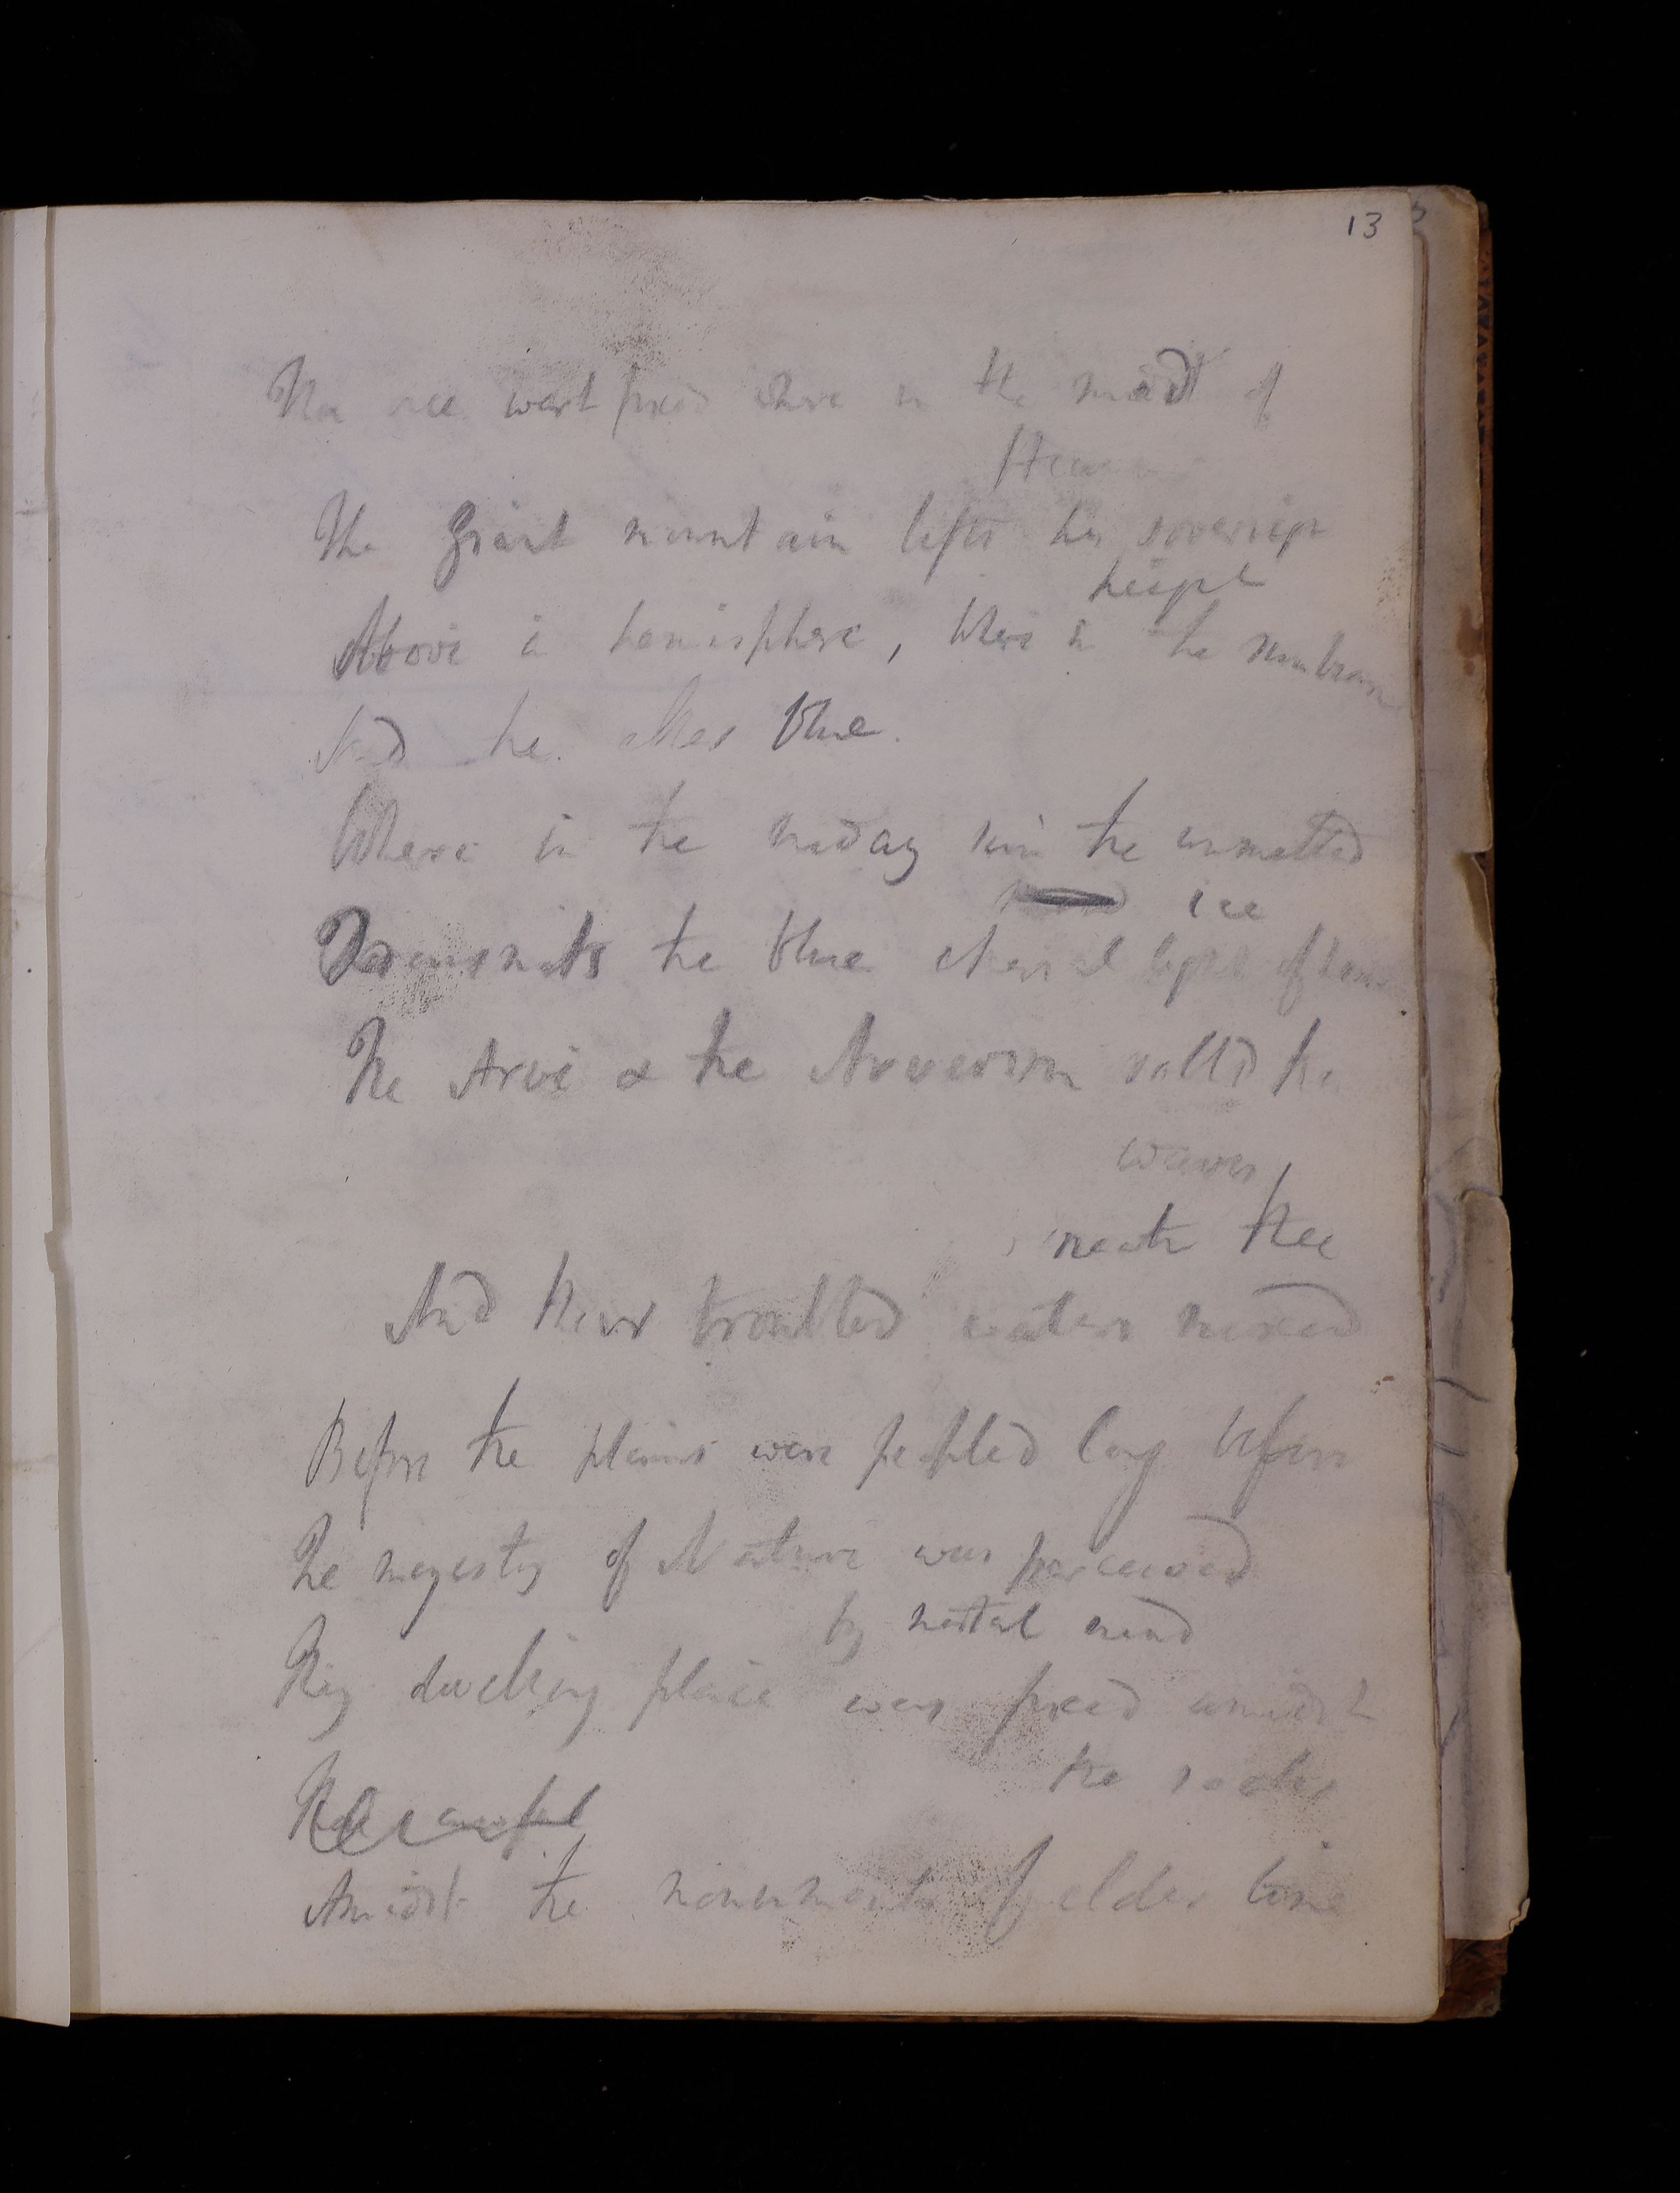 13
Thou once wert fixed where in the midst of
Heaven
The Giant mountain lifts his sovereign
height
Above a hemisphere, Where in the sunbeam
And the blue.
Where in the midday sun the unmelted
ice
Transmits the blue etherial light of
The Arve & the Arveiron rolld their
waves
neath thee
And their troubled waters mixed
Before the plains were peopled long before
The majesty of Nature was perceived
by mortal mind
Thy dwelling place was fixed amidst
the rocks
The awful
Amidst the monuments of elder time